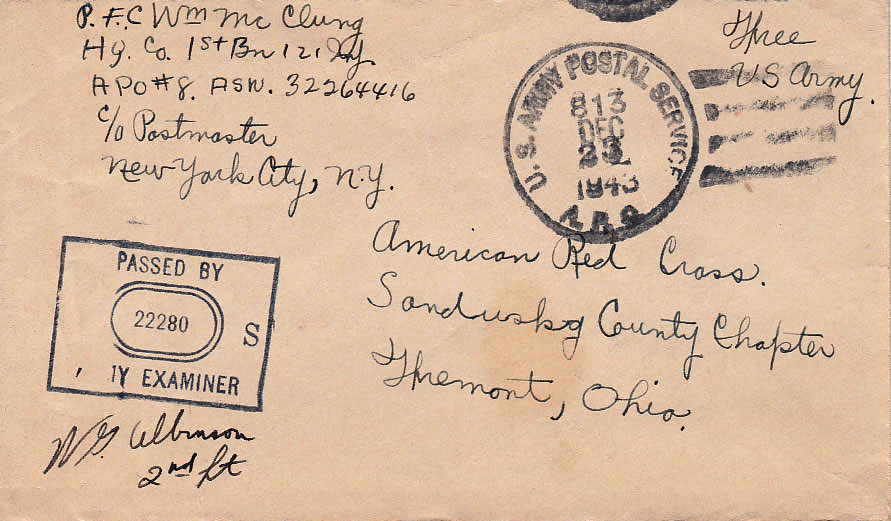 P.F.C Wm Mc Clung
Hq. Co. 1st Bn 121 Inf
APO #8. ASN. 32264416
c/o Postmaster
New York City, N.Y.
Free
US Army.
U.S. ARMY POSTAL SERVICE
813
DEC
23
1943
A.P.O.
American Red Cross.
Sandusky County Chapter
Fremont, Ohio.
PASSED BY
22280
S
MY EXAMINER
2nd Lt